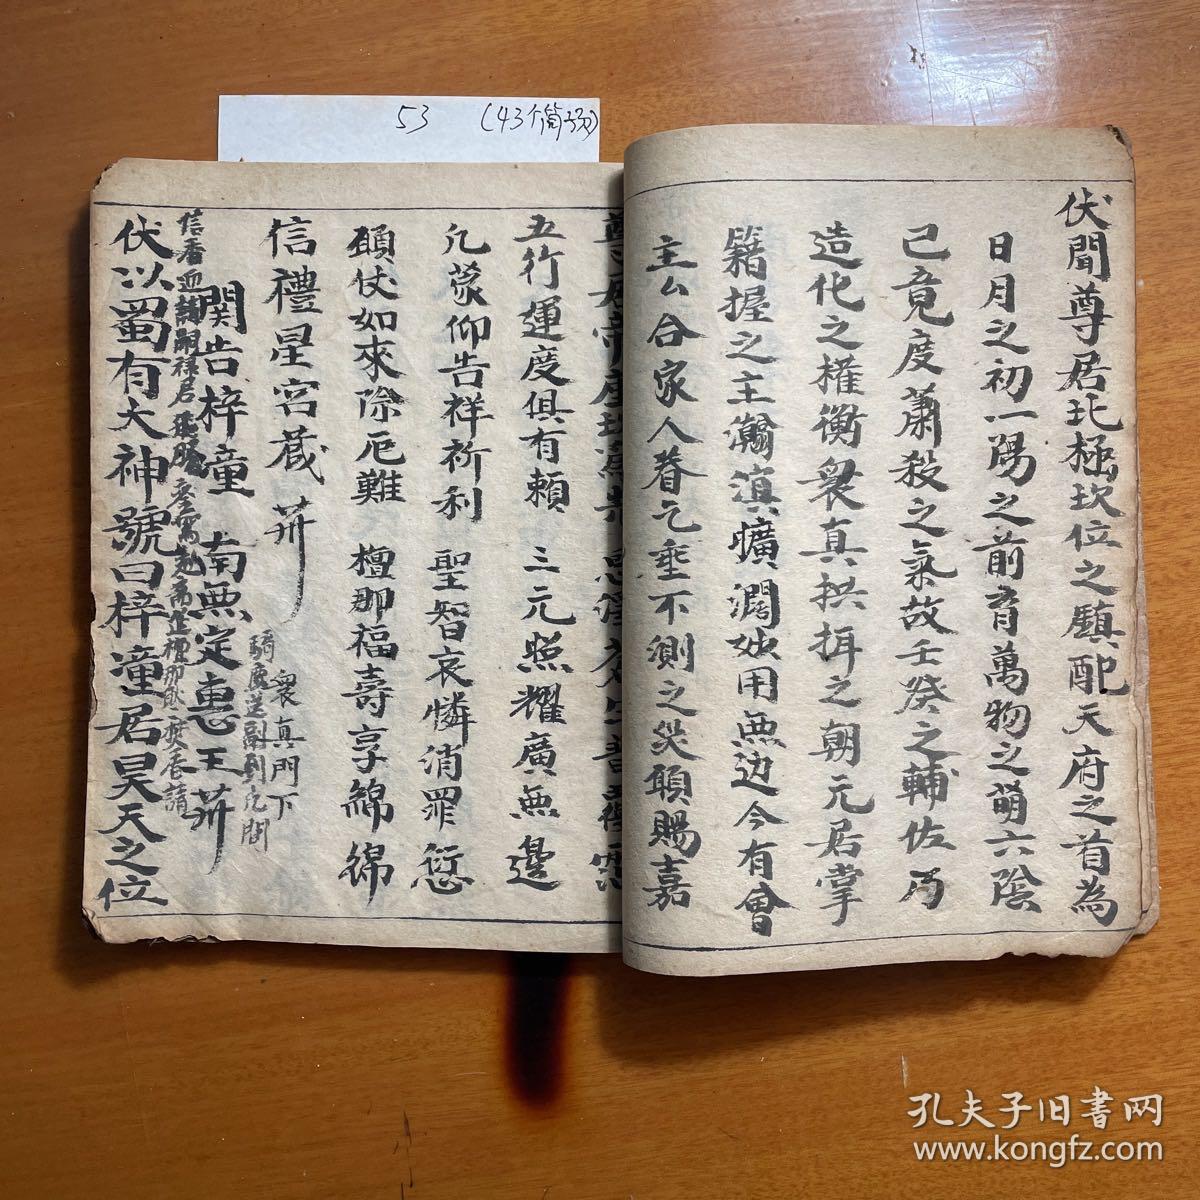 53 (43个筒子页)
伏聞尊居北極坎位之顯配天府之首為
日月之初一陽之前育萬物之萌六陰
已竟度蕭殺之氣故壬癸之輔佐乃
造化之權衡衆真拱揖之朝元居掌
籍握之主瀚滇曠濶妙用無边今有會
主公合家人眷乞垂不測之災願賜嘉
五行運度俱有賴 三元照耀廣無邊
凡蒙仰告祥祈利 聖智哀憐消罪愆
願伏如來除厄難 檀那福壽享綿綿
信禮星宮蔵 衆真門下
関告梓潼 南無定惠王
伏以蜀有大神號曰梓潼君昊天之位
孔夫子旧書网
www.kongfz.com